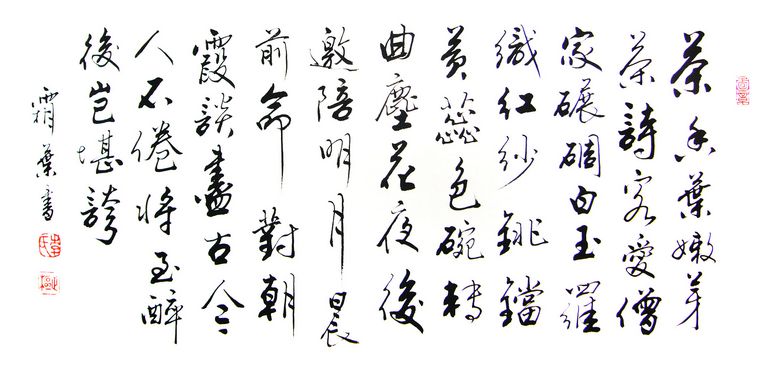 茶香葉嫩芽
茶詩客愛僧
家碾碉白玉羅
織紅紗銚鐺
黃蕊色碗轉
曲塵花夜後
邀陪明月晨
前命對朝
霞談盡古今
人不倦將至醉
後豈堪誇
霜葉書